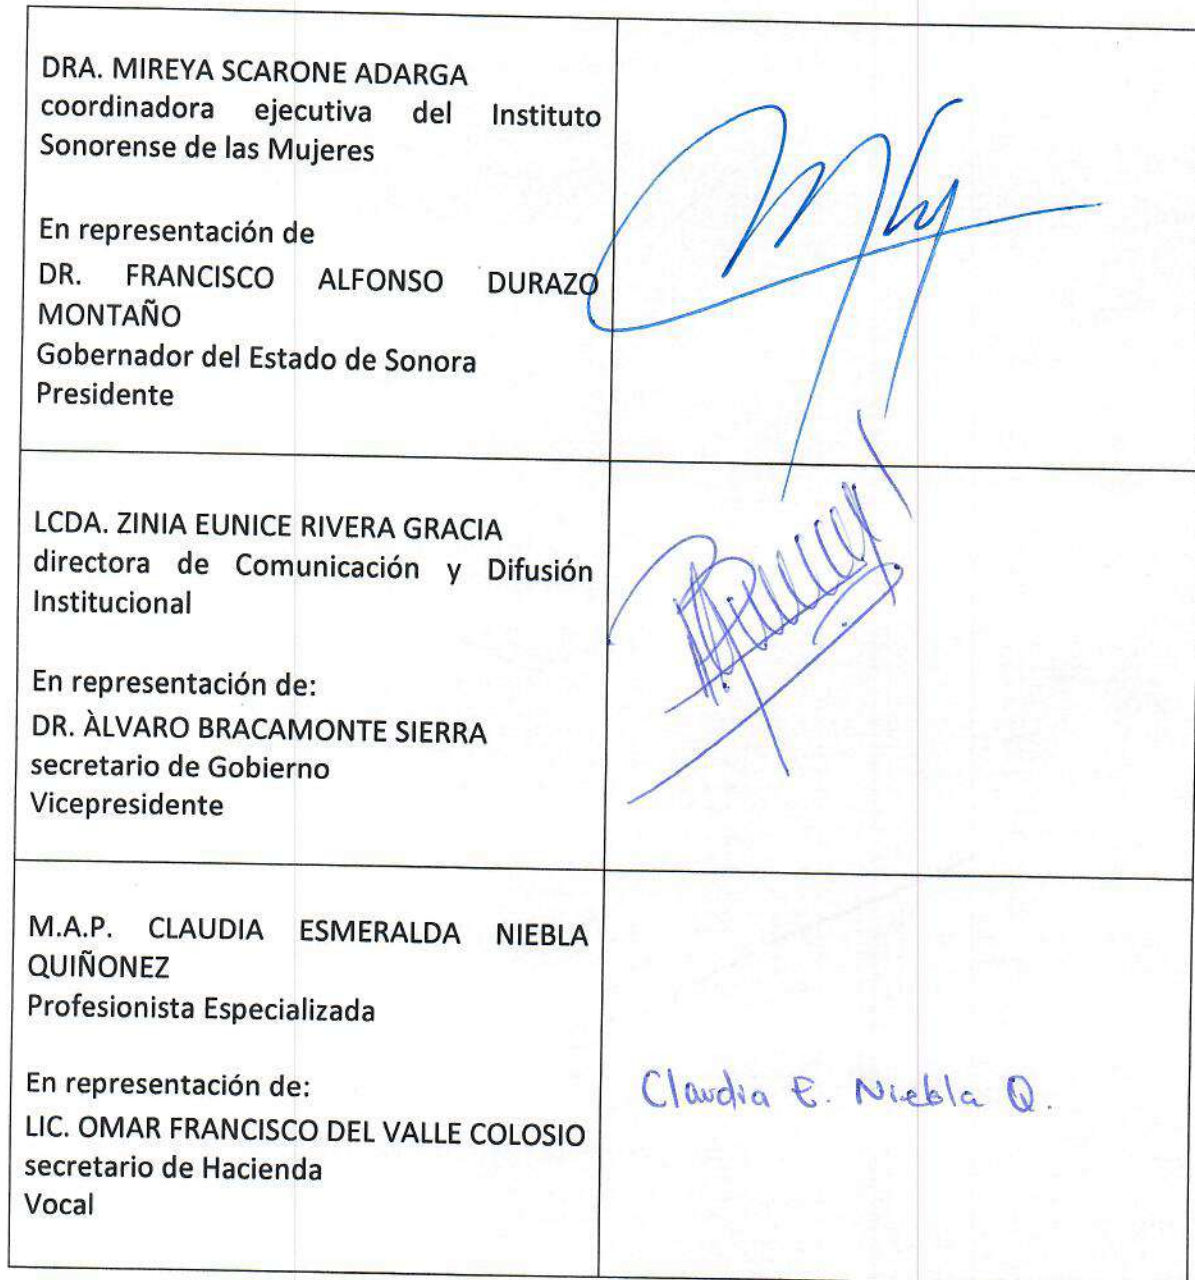 DRA. MIREYA SCARONE ADARGA
coordinadora ejecutiva del Instituto
Sonorense de las Mujeres
En representación de
DR. FRANCISCO ALFONSO DURAZO
MONTAÑO
Gobernador del Estado de Sonora
Presidente
LCDA. ZINIA EUNICE RIVERA GRACIA
directora de Comunicación y Difusión
Institucional
En representación de:
DR. ÀLVARO BRACAMONTE SIERRA
secretario de Gobierno
Vicepresidente
M.A.P. CLAUDIA ESMERALDA NIEBLA
QUIÑONEZ
Profesionista Especializada
En representación de:
LIC. OMAR FRANCISCO DEL VALLE COLOSIO
secretario de Hacienda
Vocal
Claudia E. Niebla Q.